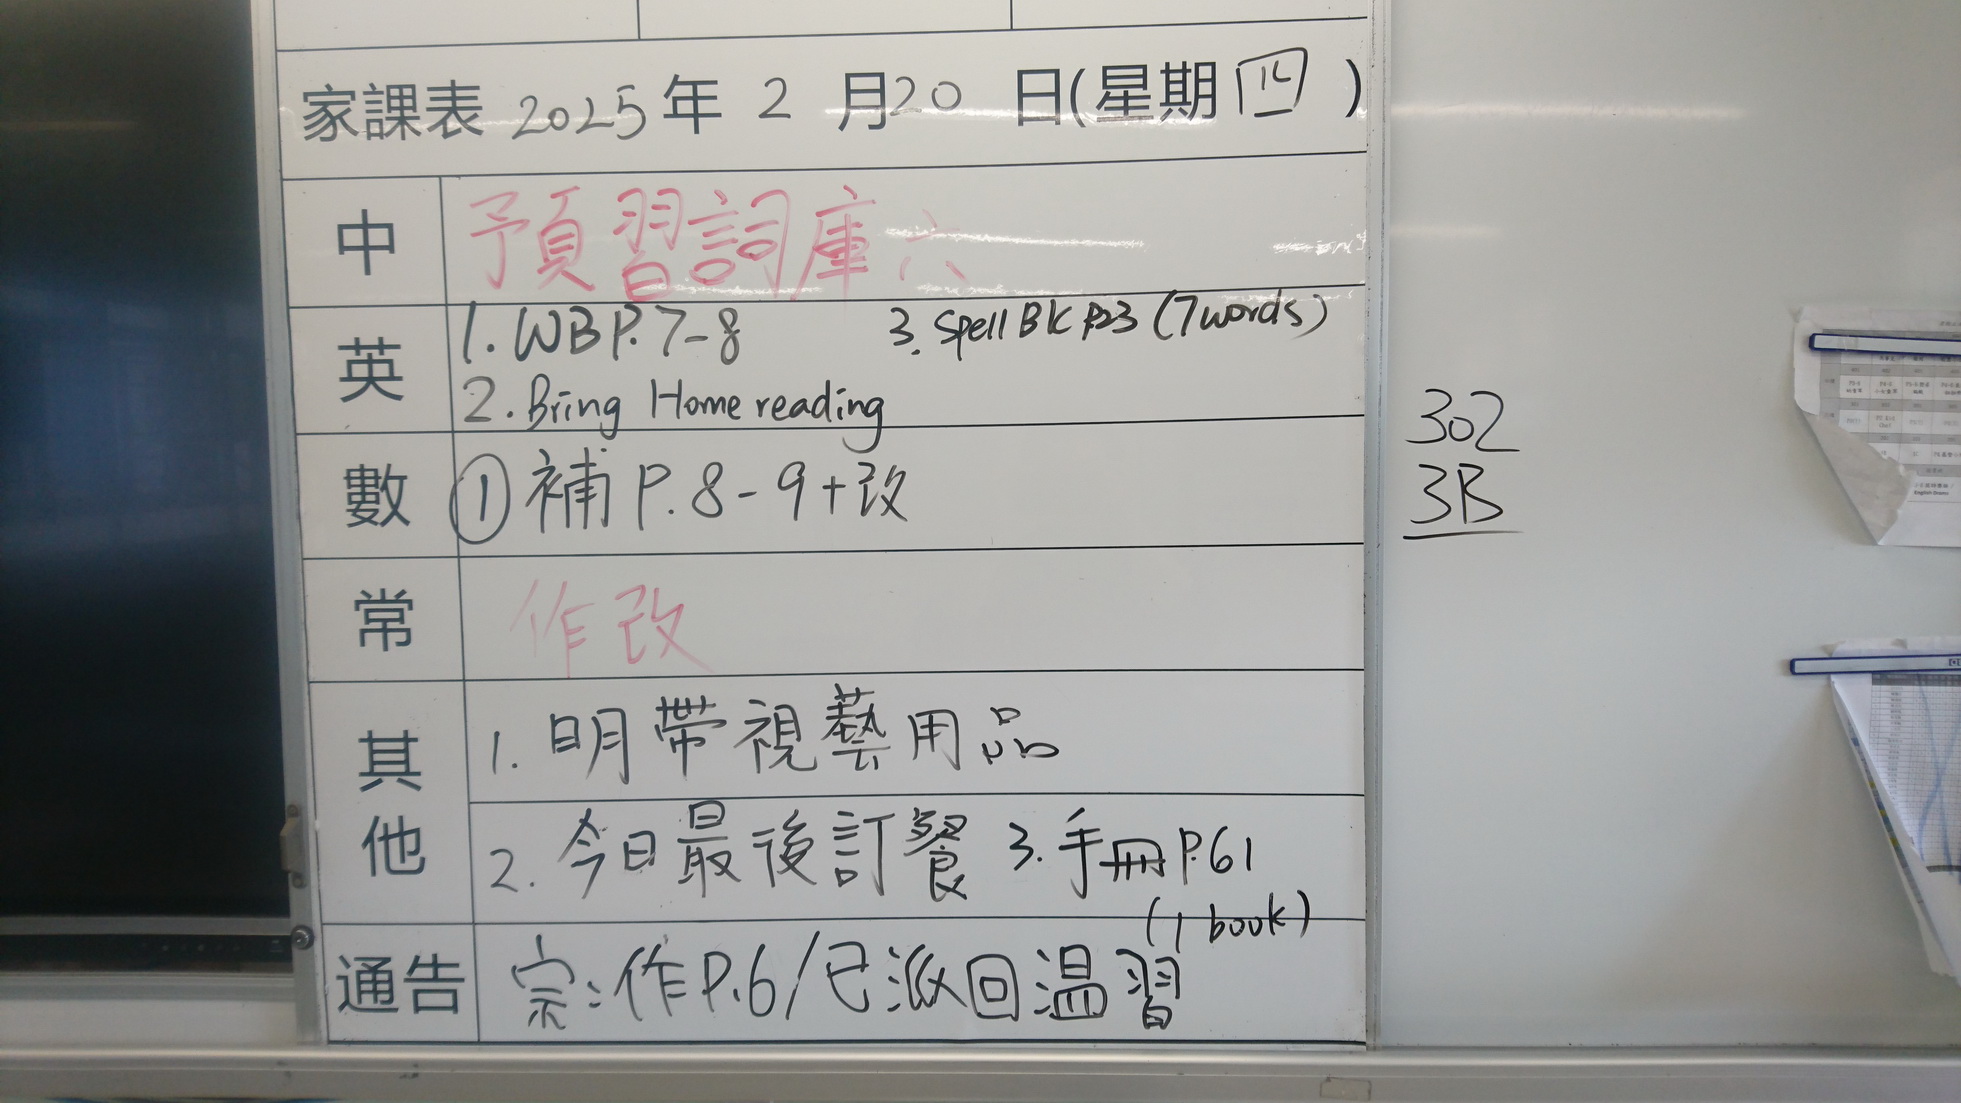 家課表 2025年 2 月20 日(星期四)
中 預習詞庫六
英 1. WB P.7-8 3. Spell BK P.23 (7 words)
2. Bring Home reading
數 ① 補 P.8-9+改
常 作改
其他 1. 明帶視藝用品
2. 今日最後訂餐 3. 手冊P.61
(1 book)
通告 宗:作P.6/已派回溫習
302
3B
English Drama